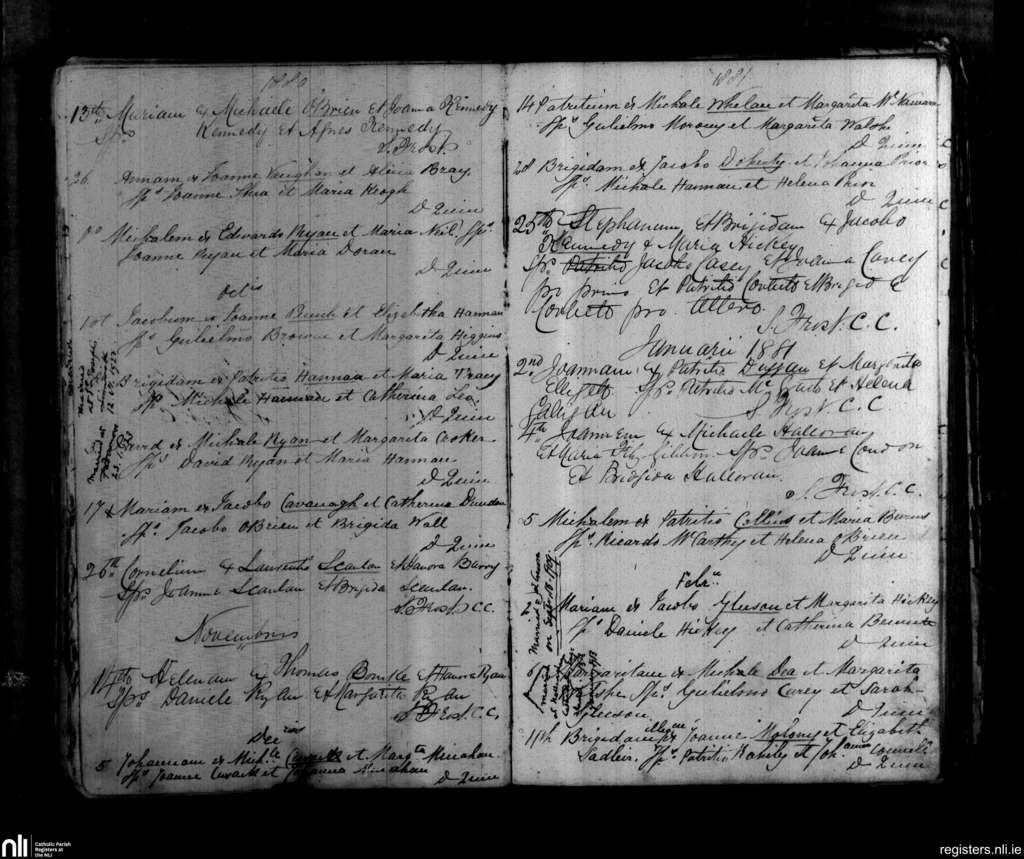 1880
13th Mariam ex Michaele O'Brien et Joana Kennedy
Sps Kennedy et Agnes Kennedy
S. Frost.
26. Annam ex Joanne Vaughan et Bray
Sps Joanne Shea et Maria Keogh
D Quin
Michalem ex Edwardo Ryan et Maria Neil Sps
Joanne Ryan et Maria Doran
D Quin
Octis
Jacobum ex Joanne et Elizabetha Hannan
Sps Gulielmo Browne et Margarita Higgins
D Quin
Brigidam ex Patritio Hannan et Maria Tracy
Sps Michale Hannan et Catherina Lea.
D Quin
David ex Michale Ryan et Margarita Cooker
Sps David Ryan et Maria Hannan
D Quin
17 Mariam ex Jacobo Cavanagh et Catherina Dundon
Sps. Jacobo OBrien et Brigida Wall
D Quin
26th Cornelium ex Laurentio Scanlan et Barry
Sps Joanne Scanlan et Brigida Scanlan.
S. Frost CC.
Novembris
14th Helenam ex Thomas Bourke et Ryan
Sps Daniele Ryan et Margarita Ryan
S. Frost C.C.
5 Johannam ex Michle Cusack et Margta Minahan
Sps Joanne Cusack et Johanna Minahan
D Quin
1881
14 Patritium ex Michale Whelan et Margarita McNamara
Sps Gulielmo Morony et Margarita Walsh
D Quin
28 Brigidam ex Jacobo Doherty et Johanna Prior
Sps. Michale Hannan et Helena Prior
D Quin
25th Stephanum, et Brijidam ex Jacobo
Kennedy & Maria Hickey
Sps. Patritio Jacobo Casey et Joana Carey
pro primo et Patritio et Brigida
pro. altero.
S. Frost. C.C.
Januarii 1881
2nd Joannam ex Patritio Duggan et Margarita
Sps Patritio Mc et Helena
Galigan
S Frost C.C
4th Joannem ex Michaele Halloran
et Maria Fitz Gibbon - Sps Joanne Condon
Et Bridgida Halloran.
S. Frost C.C.
5 Michalem ex Patritio Collins et Maria Burns
Sps. Ricardo McCarthy et Helena OBrien
D Quin
Febr
2 Mariam ex Jacobo Gleeson et Margarita Hickey
Sps Daniele Hickey et Catherina Bennett
D Quin
Married
on Sept 18. 1909
6 Margaritam ex Michale Dea et Margarita
Sps. Gulielmo Carey et Sarah
Gleeson.
D Quin
11th Brigidam ex Joanne Molony et Elizabeth
Sadleir. Sps. Patritio et Johanna Connell
D Quin
nli
Catholic Parish
Registers at
the NLI
registers.nli.ie